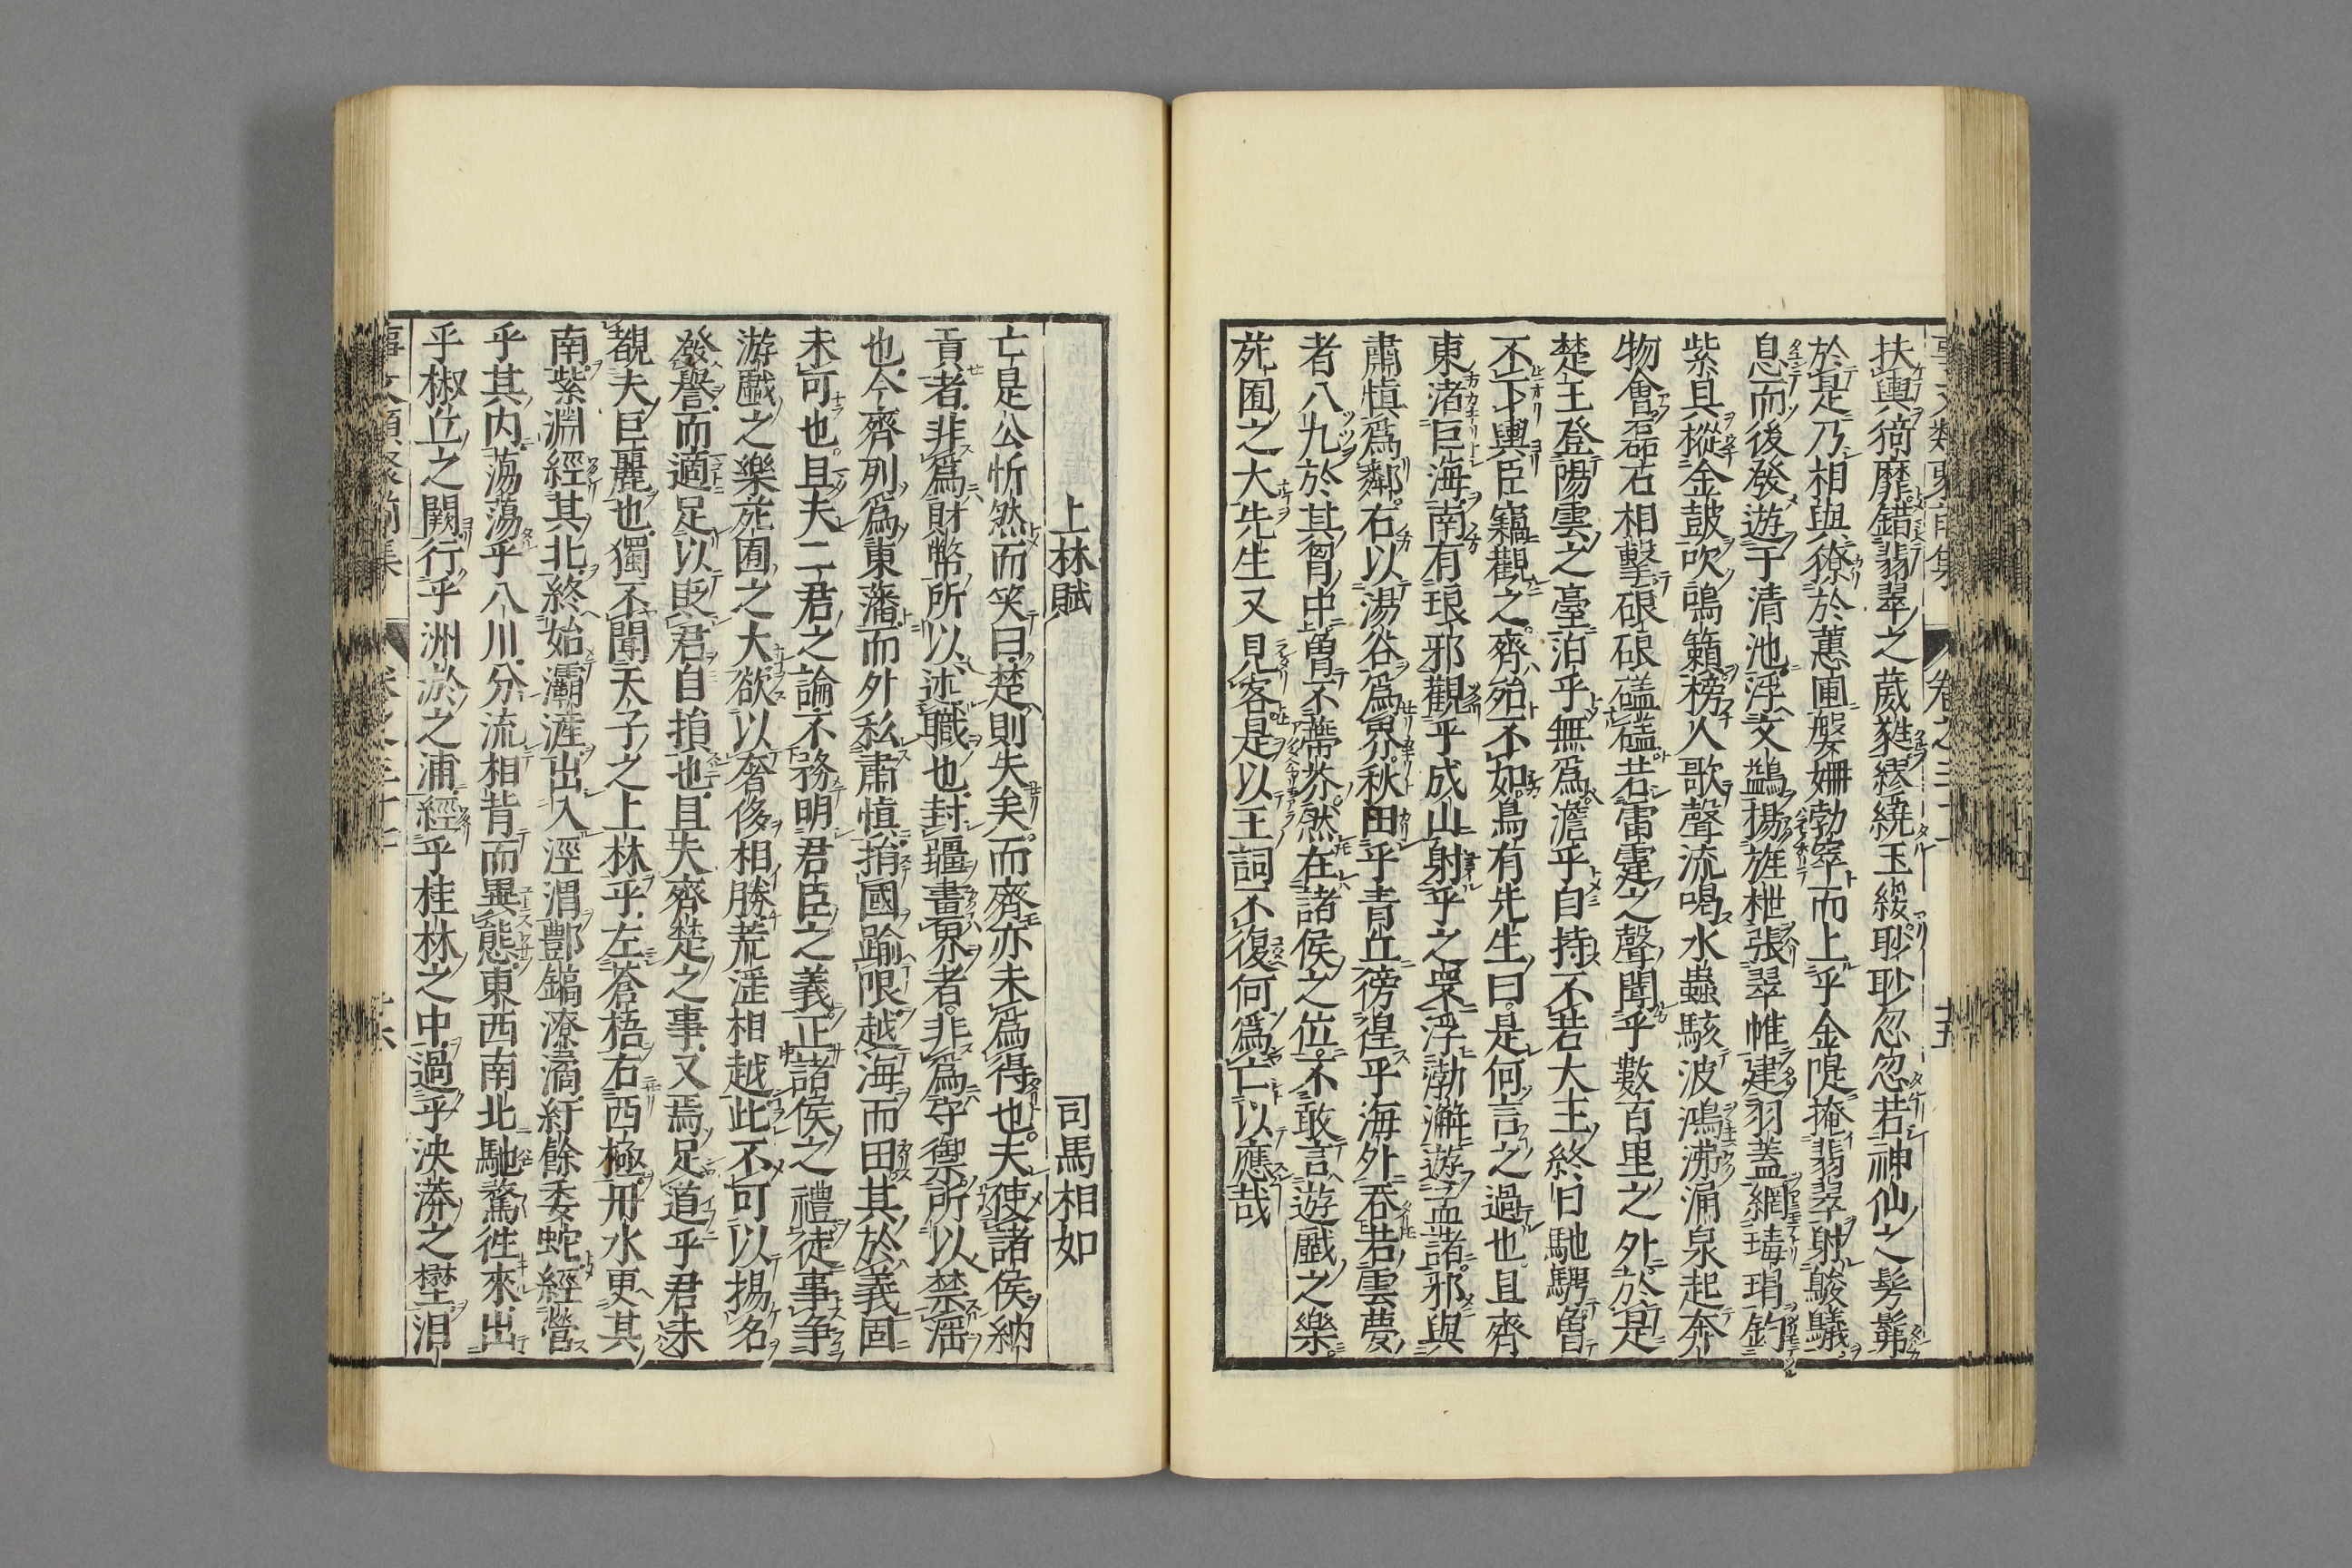 事文類聚前集 卷之三十七 十五
扶輿猗靡錯翡翠之葳蕤繆繞玉綏眇眇忽忽若神仙之髣髴
於是乃相與獠於蕙圃媻姍勃窣而上乎金隄掩翡翠射鵔鸃
息而後發遊于清池浮文鷁揚旌枻張翠帷建羽蓋網瑇瑁釣
紫具樅金鼓吹鳴籟榜人歌聲流喝水蟲駭波鴻沸涌泉起奔
物會磊石相擊硠硠礚礚若雷霆之聲聞乎數百里之外於是
楚王登陽雲之臺泊乎無爲澹乎自持不若大王終日馳騁曾
不下輿臣竊觀之齊殆不如烏有先生曰是何言之過也且齊
東渚巨海南有琅邪觀乎成山射乎之罘浮渤澥遊孟諸邪與
肅慎爲鄰右以湯谷爲界秋田乎青丘徬徨乎海外吞若雲夢
者八九於其胷中曾不蔕芥然在諸侯之位不敢言遊戲之樂
苑囿之大先生又見客是以王詞不復何爲亡以應哉
上林賦 司馬相如
亡是公忻然而笑曰楚則失矣而齊亦未爲得也夫使諸侯納
貢者非爲財幣所以述職也封疆畫界者非爲守禦所以禁淫
也今齊列爲東藩而外私肅慎捐國踰限越海而田其於義固
未可也且夫二君之論不務明君臣之義正諸侯之禮徒事争
游戲之樂苑囿之大欲以奢侈相勝荒淫相越此不可以揚名
發譽而適足以貶君自損也且夫齊楚之事又焉足道乎君未
覩夫巨麗也獨不聞天子之上林乎左蒼梧右西極丹水更其
南紫淵經其北終始灞滻出入涇渭酆鎬潦潏紆餘委蛇經營
乎其内蕩蕩乎八川分流相背而異態東西南北馳騖徃來出
乎椒丘之闕行乎洲淤之浦經乎桂林之中過乎泱漭之壄汨
事文類聚前集 卷之三十七 十六